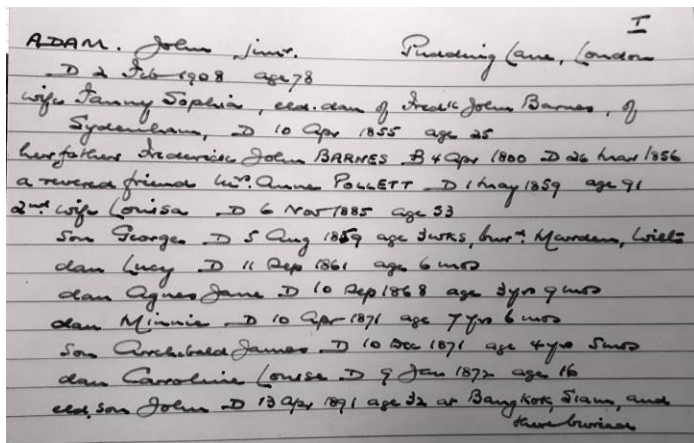 I
ADAM. John junr. Pudding Lane, London
D 2 Feb 1908 age 78
wife Fanny Sophia, eld. dau of Fredk John Barnes, of
Sydenham, D 10 Apr 1855 age 25
her father Frederick John BARNES B 4 Apr 1800 D 26 Mar 1856
a revered friend Mrs. Anne POLLETT D 1 May 1859 age 91
2nd wife Louisa D 6 Nov 1885 age 53
son George D 5 Aug 1859 age 3wks, burd. Marden, Wilts
dau Lucy D 11 Sep 1861 age 6 mos
dau Agnes Jane D 10 Sep 1868 age 3yrs 9mos
dau Minnie D 10 Apr 1871 age 7 yrs 6 mos
son Archibald James D 10 Dec 1871 age 4yrs 5mos
dau Carroline Louise D 9 Jan 1872 age 16
eld. son John D 13 Apr 1891 age 32 at Bangkok, Siam, and
there buried